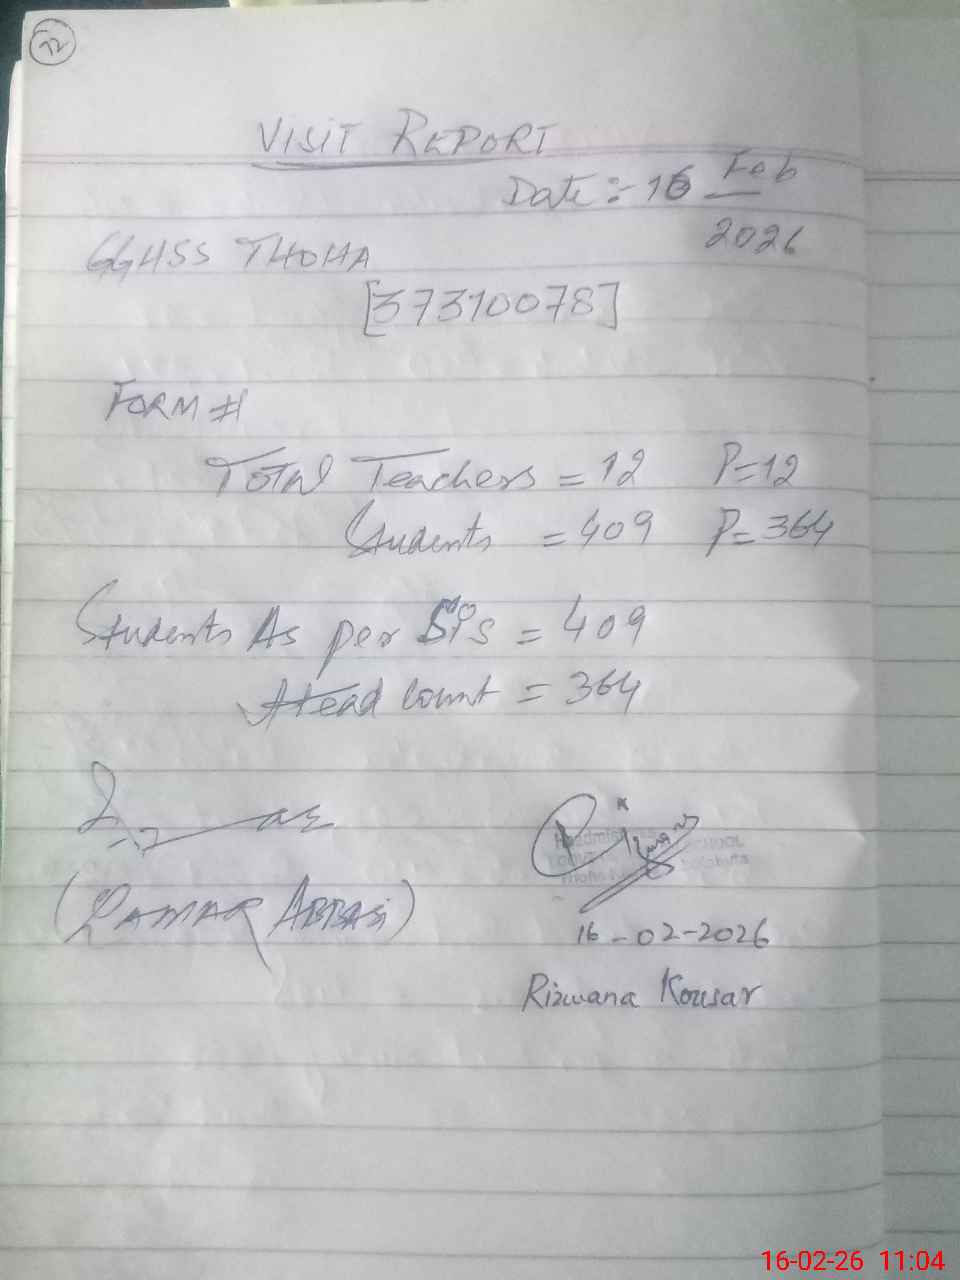 72
VISIT REPORT
Date :- 16 Feb
2026
GGHSS THOHA
[37310078]
FORM #
Total Teachers = 12 P=12
Students = 409 P=364
Students As per SIS = 409
Head Count = 364
(QAMAR ABBAS)
16-02-2026
Rizwana Kousar
16-02-26 11:04